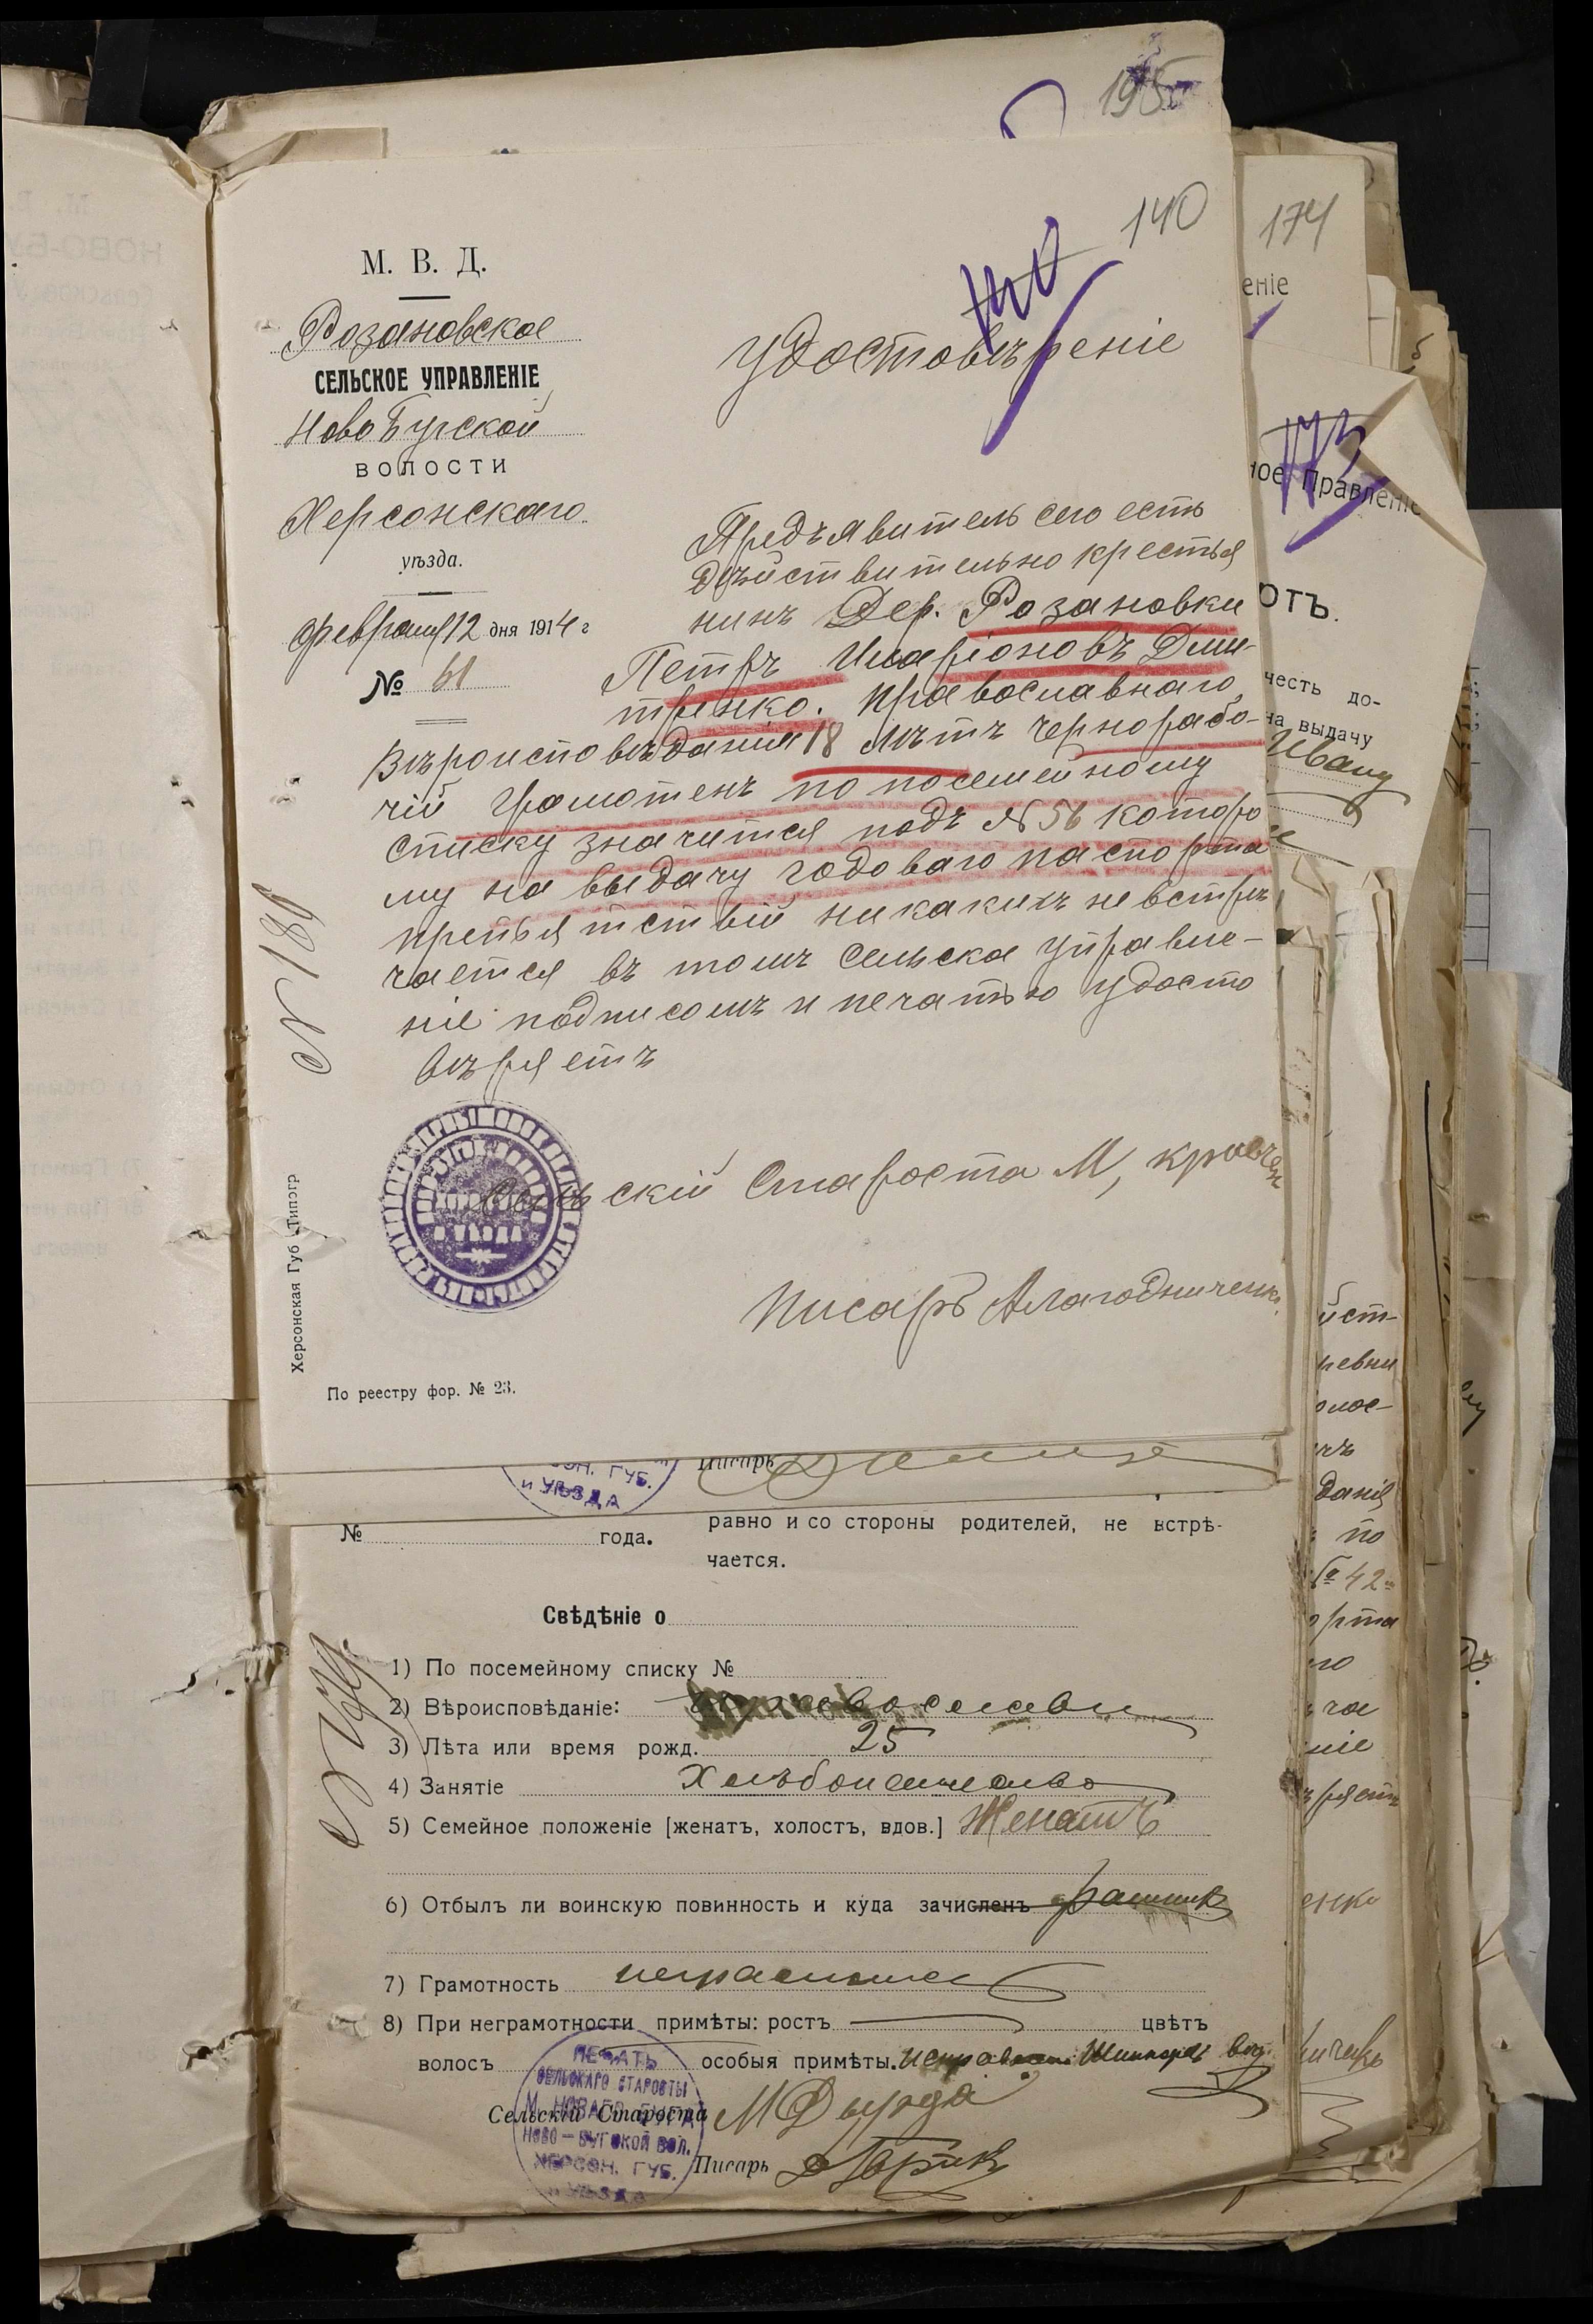 195
140
140
174
М. В. Д.
Розановское
СЕЛЬСКОЕ УПРАВЛЕНІЕ
Ново Бугской
ВОЛОСТИ
Херсонскаго
уѣзда.
Февраля 12 дня 1914 г
№ 61
удостовѣреніе
Предъявитель сего есть
дѣйствительно крестья
нинъ Дер. Розановки
Петръ Иларіоновъ Дми-
тренко. православнаго
вѣроисповѣданія 18 лѣтъ чернорабо-
чій грамотенъ по посемейному
списку значится подъ № 56 которо
му на выдачу годоваго паспорта
препьятствій никакихъ не встрѣ
чается въ томъ Сельское управле-
ніе подписомъ и печатью удосто
вѣряетъ
№ 180
Сельскій Староста М, кравчен
Писарь Алагодниченко
Херсонская Губ Типогр
По реестру фор. № 23.
еніе
173
ное Правленіе
ОТЪ.
честь до-
на выдачу
Ивану
йст-
ревни
олос-
данія
по
№ 42
орта
го
ча
ніе
ряетъ
енко
ОН. ГУБ.
И УѢЗДА
Писарь
№ года.
равно и со стороны родителей, не встрѣ-
чается.
Свѣдѣніе о
1) По посемейному списку №
2) Вѣроисповѣданіе: православн
3) Лѣта или время рожд. 25
4) Занятіе Хлѣбопашество
5) Семейное положеніе [женатъ, холостъ, вдов.] Женатъ
6) Отбылъ ли воинскую повинность и куда зачисленъ ратникъ
7) Грамотность неграмотен
8) При неграмотности примѣты: ростъ цвѣтъ
волосъ особыя примѣты.
ПЕЧАТЬ
СЕЛЬСКАГО СТАРОСТЫ
М. НОВАГО-БУГА
НОВО-БУГСКОЙ ВОЛ.
ХЕРСОН. ГУБ.
И УѢЗДА
Сельскій Староста М Дырда
Писарь